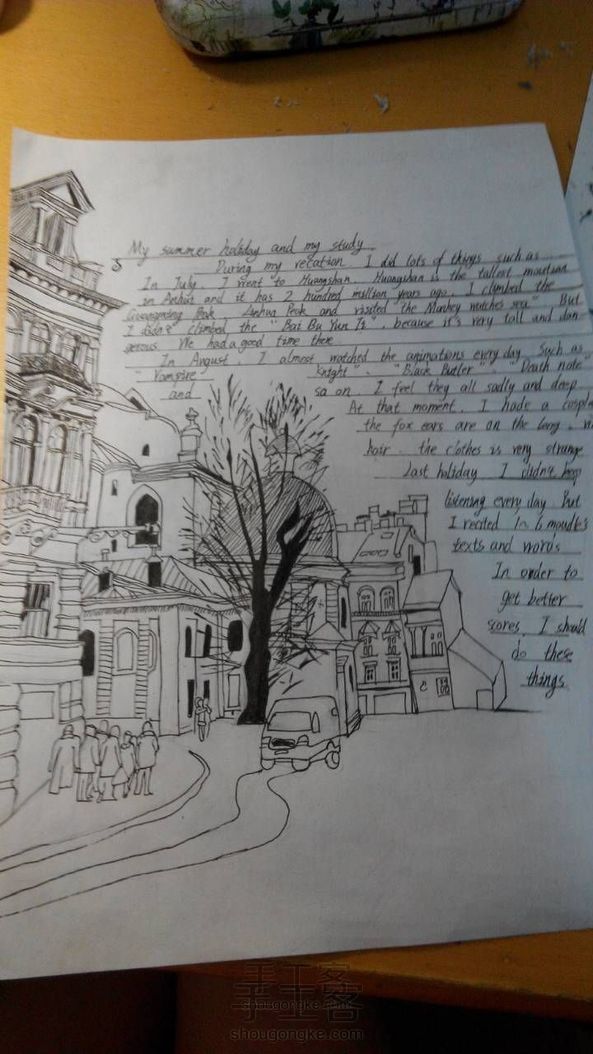 My summer holiday and my study
During my vecation I did lots of things such as
In July, I went to Huangshan. Huangshan is the tallest mountian
in Anhui and it has 2 hundred million years ago. I climbed the
Peak and visited the "Monkey watches sea". But
I didn't climbed the "Bai Bu Yun Ti", because it's very tall and dan-
gerous. We had a good time there
In August, I almost watched the animations every day. Such as
"Vampire Knight" "Black Butler" "Death note"
and so on. I feel they all sadly and deep
At that moment, I hade a cosplay
the fox ears are on the long
hair. the clothes is very strange
last holiday, I didn't keep
listening every day But
I recited
texts and words
In order to
get better
scores I should
do these
things
手工客
shougongke.com
手工客
shougongke.com